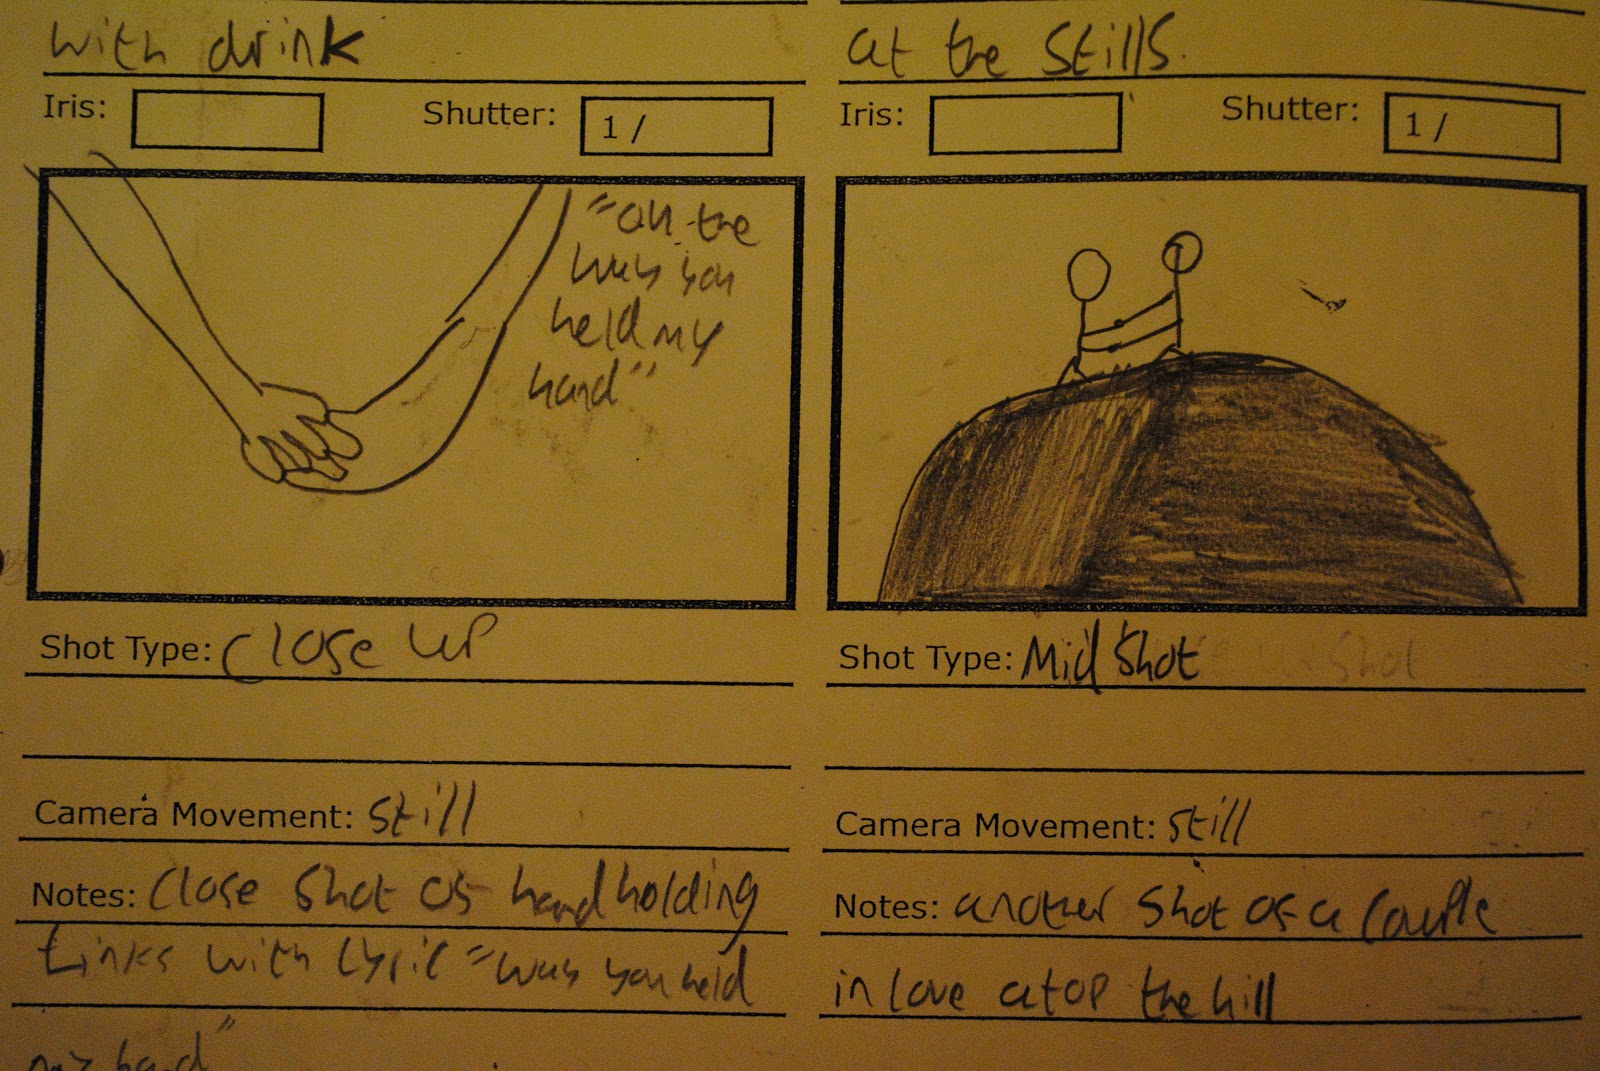 with drink
Iris:
Shutter: 1 /
"oh the
way you
held my
hand"
Shot Type: Close up
Camera Movement: Still
Notes: Close shot of hand holding
Links with lyric "way you held
my hand"
at the stills.
Iris:
Shutter: 1 /
Shot Type: Mid Shot
Camera Movement: Still
Notes: another shot of a couple
in love atop the hill